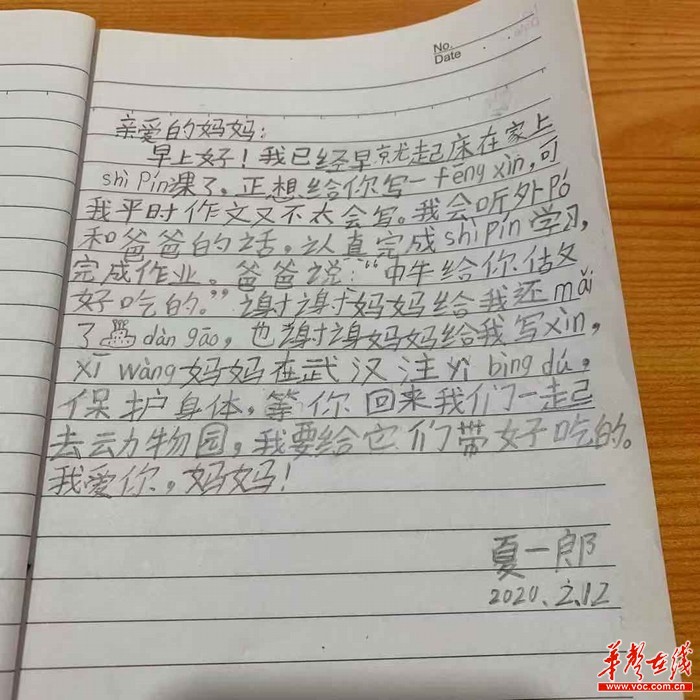 No.
Date
亲爱的妈妈：
早上好！我已经早就起床在家上
shì pín课了。正想给你写一fēng xìn，可
我平时作文又不太会写。我会听外pó
和爸爸的话，认真完成shì pín学习，
完成作业。爸爸说：“中午给你估文
好吃的。”谢谢妈妈给我还mǎi
了dàn gāo，也谢谢妈妈给我写xìn，
xī wàng妈妈在武汉注yì bìng dú，
保护身体，等你回来我们一起
去动物园，我要给它们带好吃的。
我爱你，妈妈！
夏一郎
2020.2.12
华声在线
www.voc.com.cn